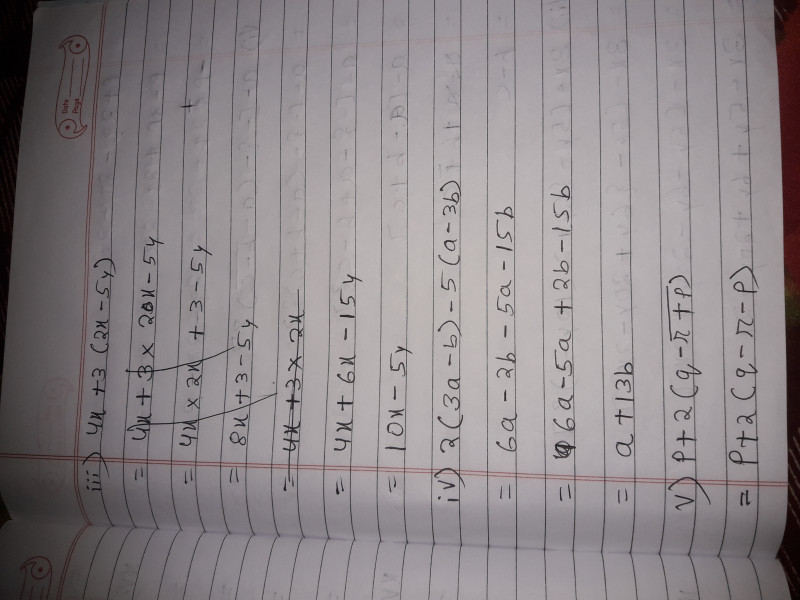 Date
Page
iii) 4x + 3 (2x - 5y)
= 4x + 3 x 20x - 5y
= 4x x 2x + 3 - 5y
= 8x + 3 - 5y
= 4x + 3 x 2x
= 4x + 6x - 15y
= 10x - 5y
iv) 2(3a - b) - 5 (a - 3b)
= 6a - 2b - 5a - 15b
= 6a - 5a + 2b - 15b
= a + 13b
v) p + 2 (q - r + p)
= p + 2 (q - r - p)